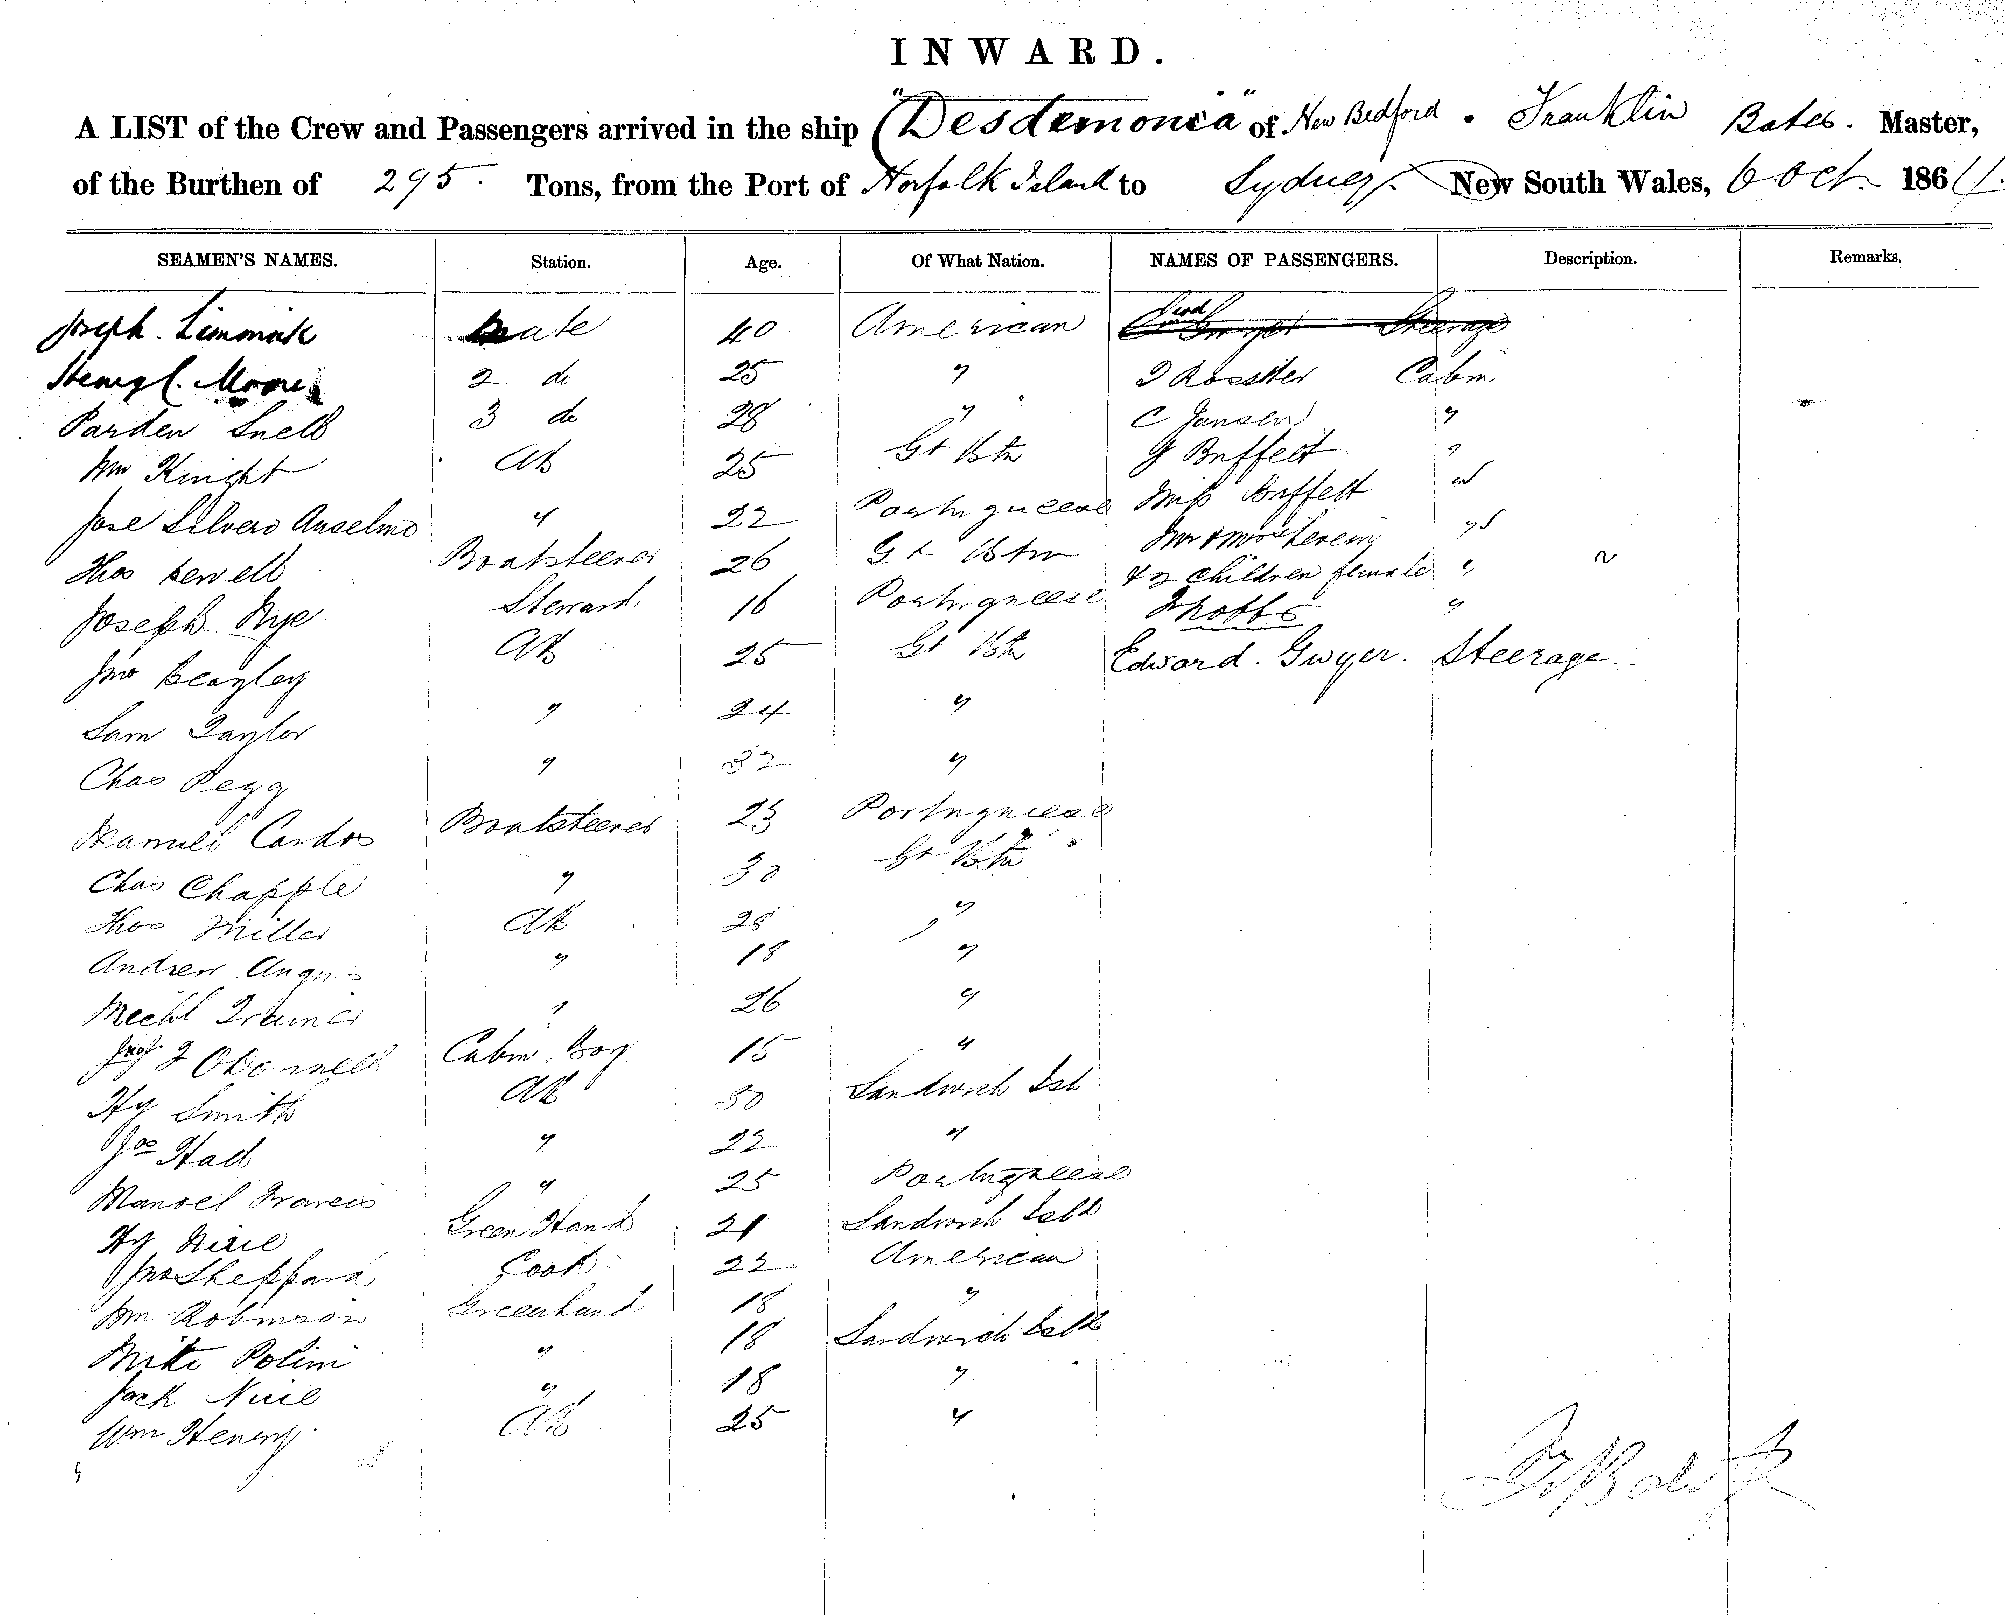 INWARD.
A LIST of the Crew and Passengers arrived in the ship "Desdemona" of New Bedford. Franklin Bates. Master,
of the Burthen of 295. Tons, from the Port of Norfolk Island to Sydney. New South Wales, 6 Oct. 186
SEAMEN'S NAMES. Station. Age. Of What Nation. NAMES OF PASSENGERS. Description. Remarks.
Joseph. Mate 40 American Gwyer Steerage
Moore 2 do 25 " Rossiter Cabin
Parden Snell 3 do 28 " C Jansen "
Wm Knight AB 25 Gt Btn G Buffett "
Jose Silvero Anselmo " 22 Portugueese Miss Buffett "
Thos Boatsteerer 26 Gt Btn Mr
Joseph Nye Steward. 16 Portugueese & 2 children female "
Jno Beagley AB 25 Gt Btn "
Sam Taylor " 24 " Edward. Gwyer. Steerage
Chas Pegg " 32 "
Manuel Cardos Boatsteerer 23 Portugueese
Chas Chapple " 30 Gt Btn
Thos Miller AB 28 "
Andrew Angus " 18 "
Michl " 26 "
J O'Donnell Cabin Boy 15 "
Hy Smith AB 30 Sandwich Isl
Jas Hall " 22 "
Manoel Francis " 25 Portugueese
Hy Green Hand 21 Sandwich Isld
Jno Sheppard Cook 22 American
Wm Robinson Greenhand 18 "
Polini " 18 Sandwich Isld
Jack " 18 "
Wm Henery AB 25 "